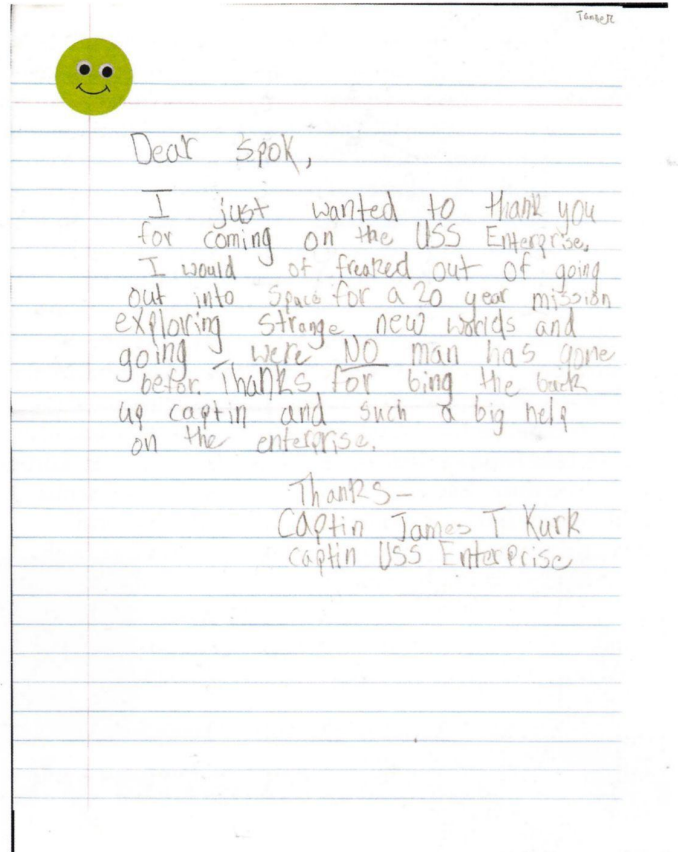 Tanner
Dear Spok,
I just wanted to thank you
for coming on the USS Enterprise.
I would of freaked out of going
out into space for a 20 year mission
exploring strange new worlds and
going were NO man has gone
befor. Thanks for bing the back
up captin and such a big help
on the enterprise.
Thanks-
Captin James T Kurk
captin USS Enterprise